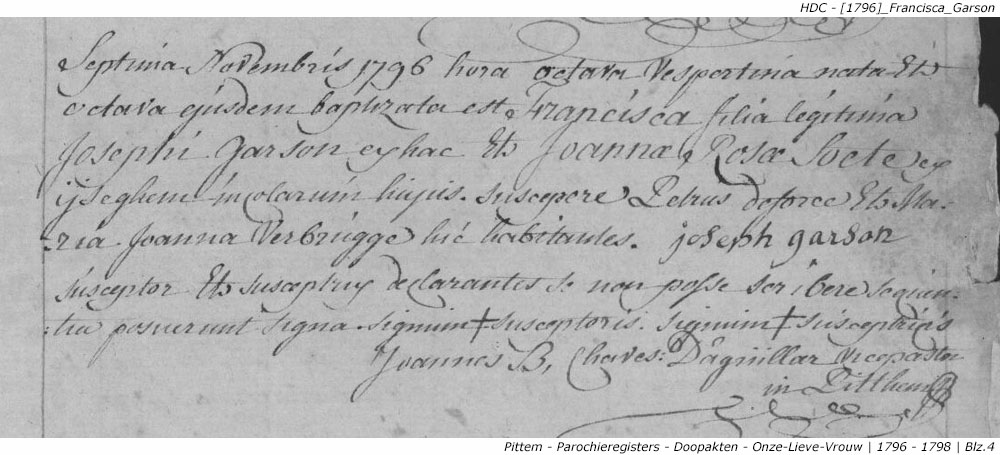 HDC - [1796]_Francisca_Garson
Septima Novembris 1796 hora octava vespertina nata Et
octava ejusdem baptizata est Francisca filia legitima
Josephi Garson ex hac Et Joannæ Rosæ Soete ex
iseghem incolarum hujus. suscepere Petrus deforce Et Ma-
-ria Joanna Verbrugge hic habitantes. joseph garson
susceptor Et susceptrix declarantes se non posse scribere sequen-
-tia posuerunt signa. signum † susceptoris. signum † susceptricis
Joannes B, Chaves: D'aguillar vicepastor
in Pitthem
Pittem - Parochieregisters - Doopakten - Onze-Lieve-Vrouw | 1796 - 1798 | Blz.4